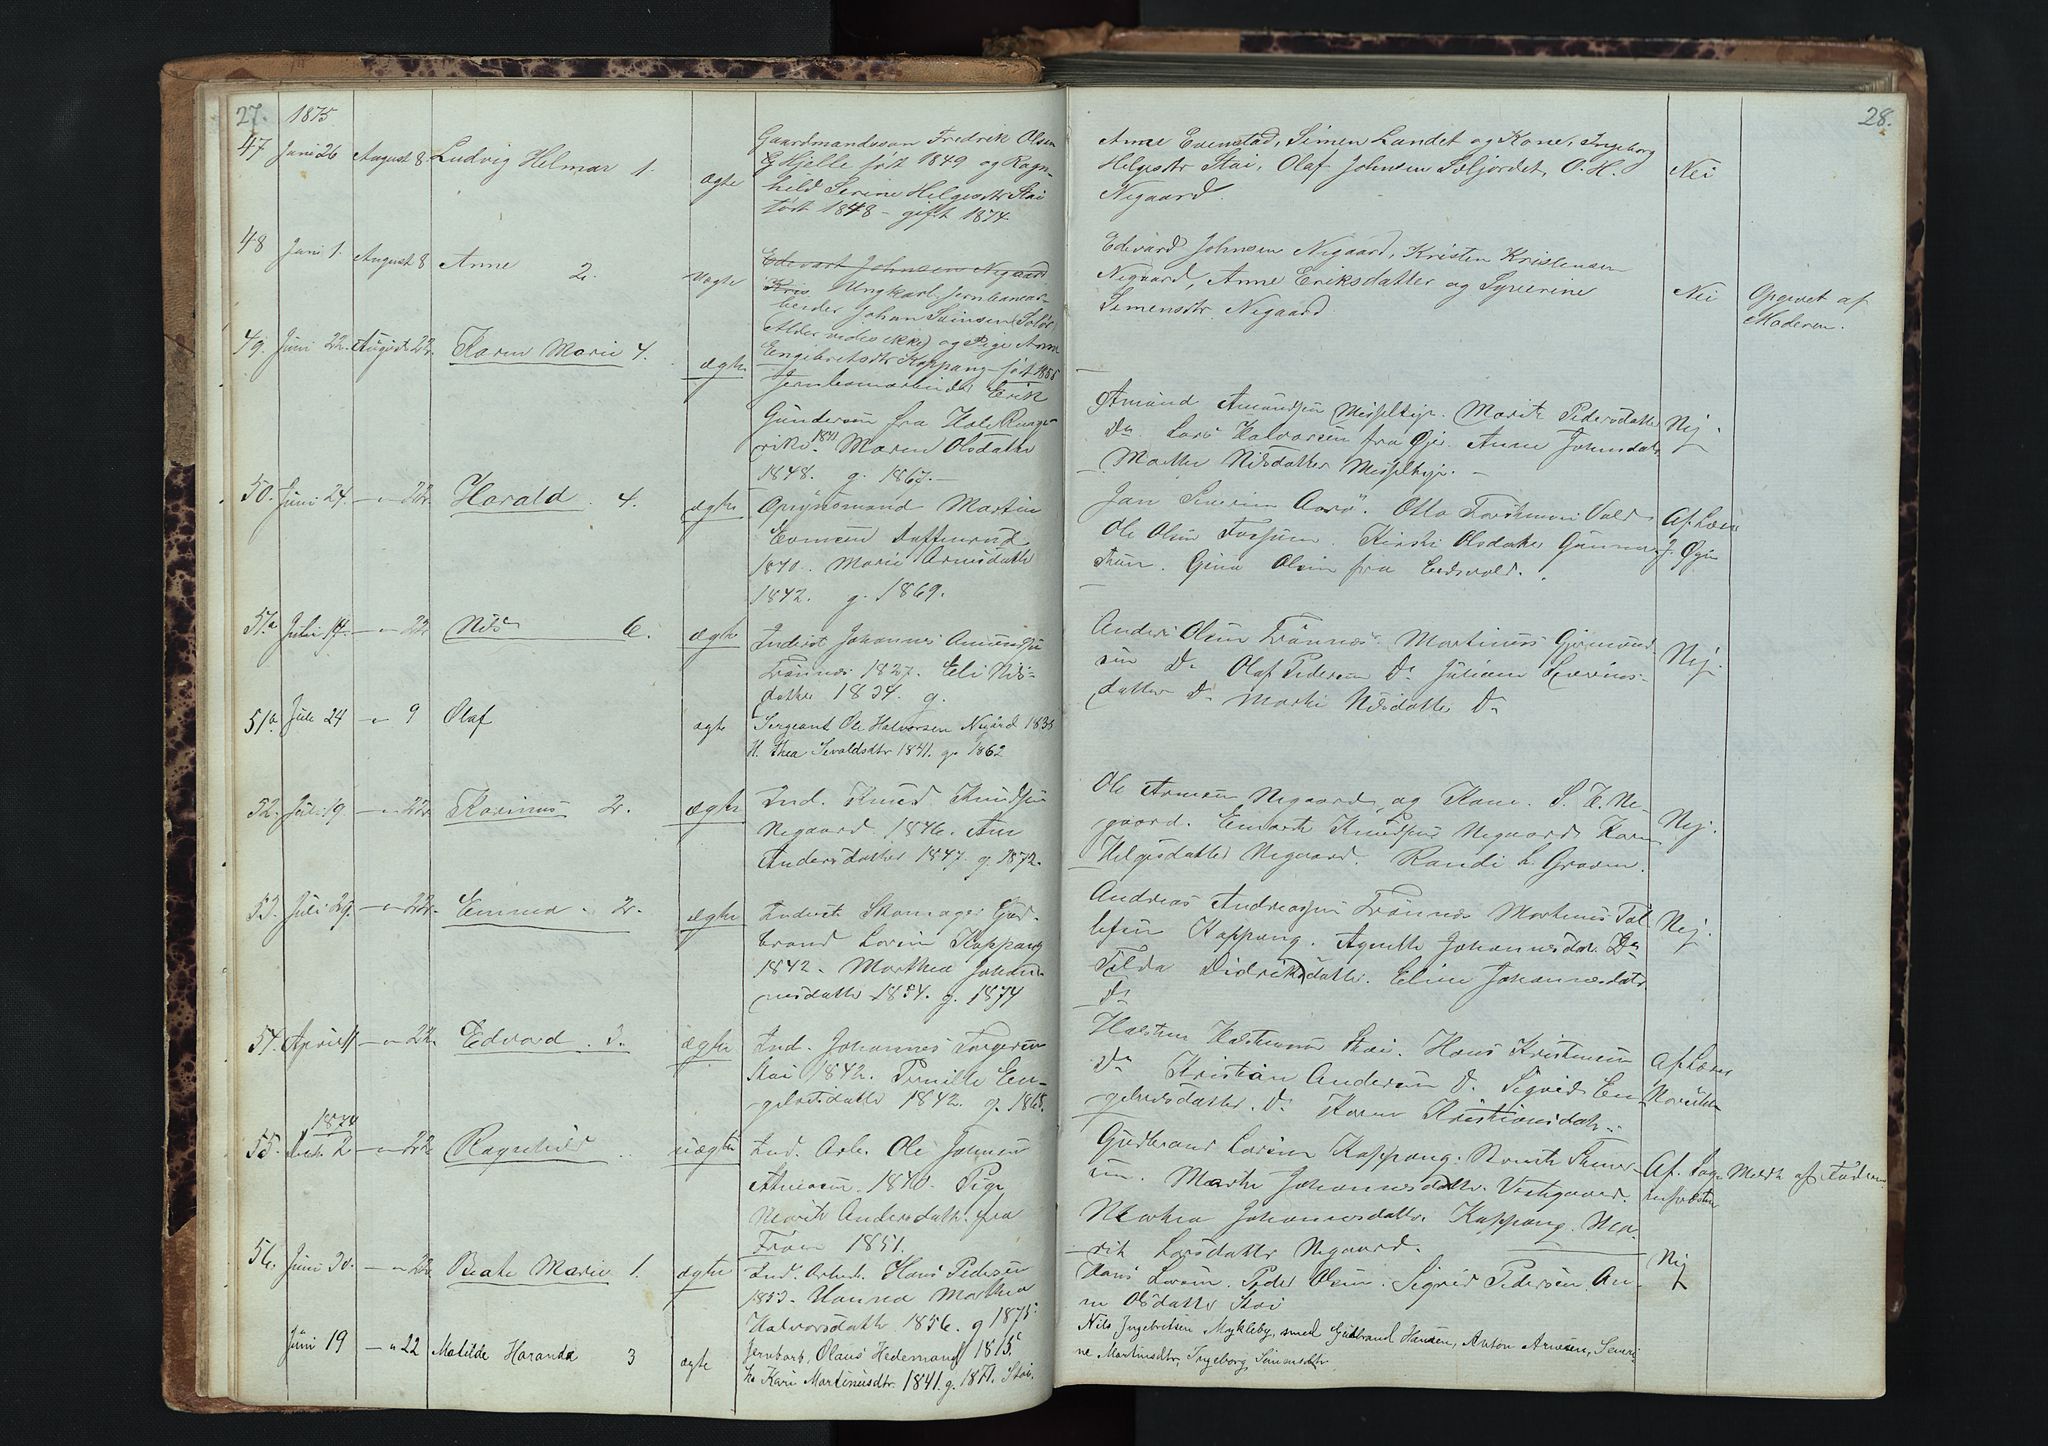 27.
1875
47 Juni 26 August 8 Ludvig Helmar 1. ægte Gaardmandssøn Fredrik Olsen
Hjelle født 1849 og Ragn-
hild Serine Helgesdtr Stai
født 1848 - gift 1874
48 Juni 1. August 8 Anne 2. uægte Edevart Johnsen Negaard
Kris Ungkarl Jernbanear-
beider Johan Svinsen (Solør
Alder vides ikke) og Pige Anne
Engebretsdtr Koppang - født 1855
49. Juni 22. August 22. Karen Marie 4. ægte Jernbanearbeider Erik
Gundersen fra Hole Ringe-
rike 1841. Maren Olsdatter
1848. g. 1867. -
50. Juni 24. - " - 22. Harald . 4. ægte Opsynsmand Martin
Evensen
1840. Marie Arnesdatter
1842. g. 1869.
51a Juli 14. - " - 22 Nils 6. ægte Inderst Johannes Amundsen
Trønnæs 1827. Eli Nils-
datter 1834. g.
51b Juli 24 - " - 9 Olaf ægte Sergeant Ole Halvorsen Negård 1838
H. Thea Sevaldsdtr 1841. g. 1862
52. Juli 19. - " - 22. Karinus 2. ægte Ind. Knud Knudsen
Negaard. 1846. Ane
Andersdatter 1847. g. 1872.
53. Juli 29. - " - 22. Emma . 2. ægte Inderst Skomager Gud-
brand Larsen Koppang
1842. Marthea Johan-
nesdatter 1854. g. 1874
54. April 11 - " - 22. Edvard . 3. ægte Ind. Johannes Torgersen
Stai 1842. Pernille En-
gebretsdatter 1842. g. 1868.
1874
55. 2 - " - 22. Ragnhild uægte Ind. Arb. Ole Johnsen
1840. Pige
Marit Andersdatter fra
1851.
56. Juni 30. - " - 22. Beate Marie 1. ægte Ind. Arbeid. Hans Pedersen
1853. Hanna Marthea
Halvorsdatter 1856. g 1875.
Juni 19 - " 22 Matilde Haranda 3 ægte Jernbarb. Olaus Hedemand 1815
h. Kari Martinusdtr. 1841. g. 1871. Stai.
28.
Anne Evenstad, Simen Landet og Kone, Ingeborg
Helgesdtr Stai, Olaf Johnsen Søljordet, O. H. Nei
Negaard.
Edevard Johnsen Negaard, Kristen Kristensen
Negaard, Anne Eriksdatter og Syverine Nei Opgivet af
Simensdtr. Negaard. Moderen.
Amund Amundsen Messelthye. Marit Pedersdatter Nej.
Do Lars Halvorsen fra Øier. Anne Johnsdatr
Marthe Nilsdatter Messelthye.
Jan Severin Aarø. Otto Torstensen Vold Af Læn
Ole Olsen Fossum. Kirsti Olsdatter Gunner-
stuen. Gina Olsen fra Eidsvold.
Anders Olsen Trønnæs. Martinus Germund-
sen Do Olaf Pedersen Do Juliane Severins- Nej.
datter Do Marthe Nilsdatter Do
Ole Arnesen Negaard og Kone. S. E. Ne-
gaard. Knudsen Negaard. Karen Nej.
Helgesdatter Negaard. Randi L. Graven.
Andreas Andreassen Trønnæs Martinus Tol-
lefsen Koppang. Agnethe Johannesdatr Do Nej.
Tilda Didriksdatter. Eline Johannesdatr
Do
Halsten Halstensen Stai. Hans Kristensen Af Læn
Do Kristian Andersen Do Sigrid En-
gebretsdatter. Do Karen Kristiansdatr.
Gudbrand Larsen Koppang. Bernt Simen- Af Sog- Meldt af Faderen
sen. Marthe Johannesdatter Vestgaard.
Marthea Johannesdatter Koppang. Ma-
rit Larsdatter Negaard. Nej
Hans Larsen. Peder Olsen. Sigrid Pedersen. An-
ne Olsdatter Stai
Nils Ingebretsen Mykleby, smed Gudbrand Hansen, Anton Arnesen, Severi-
ne Martinsdtr, Ingeborg Simensdtr